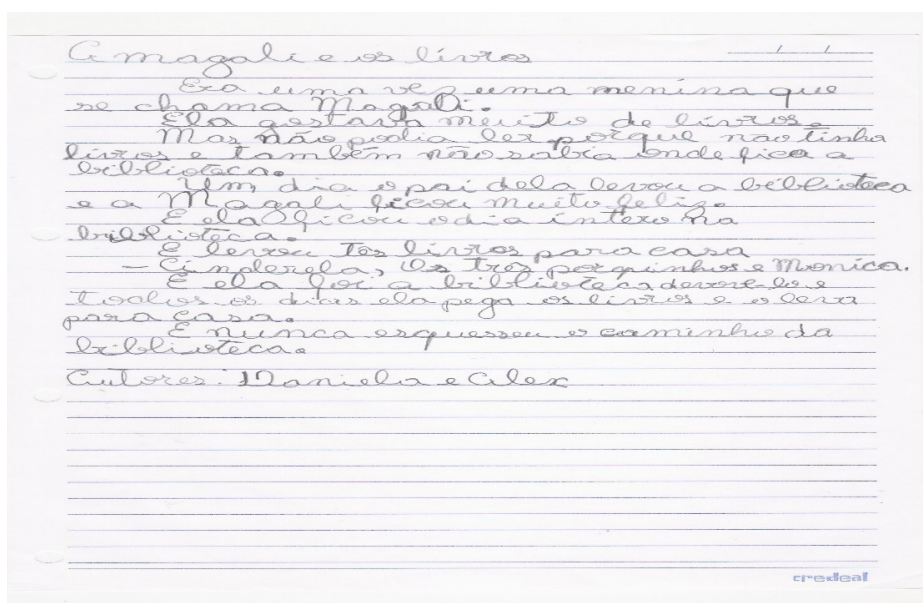 A magali e os livros
Era uma vez uma menina que
se chama Magali.
Ela gostava muito de livros.
Mas não podia ler porque não tinha
livros e também não sabia onde fica a
biblioteca.
Um dia o pai dela levou a biblioteca
e a Magali ficou muito feliz.
E ela ficou o dia intero na
biblioteca.
E levou tos livros para casa
– Cinderela, Os tros porquinhos e Monica.
E ela foi a biblioteca devove-lo e
todos os dias ela pega os livros e o leva
para casa.
E nunca esquesseu o caminho da
biblioteca.
Autores: Daniela e Alex
credeal